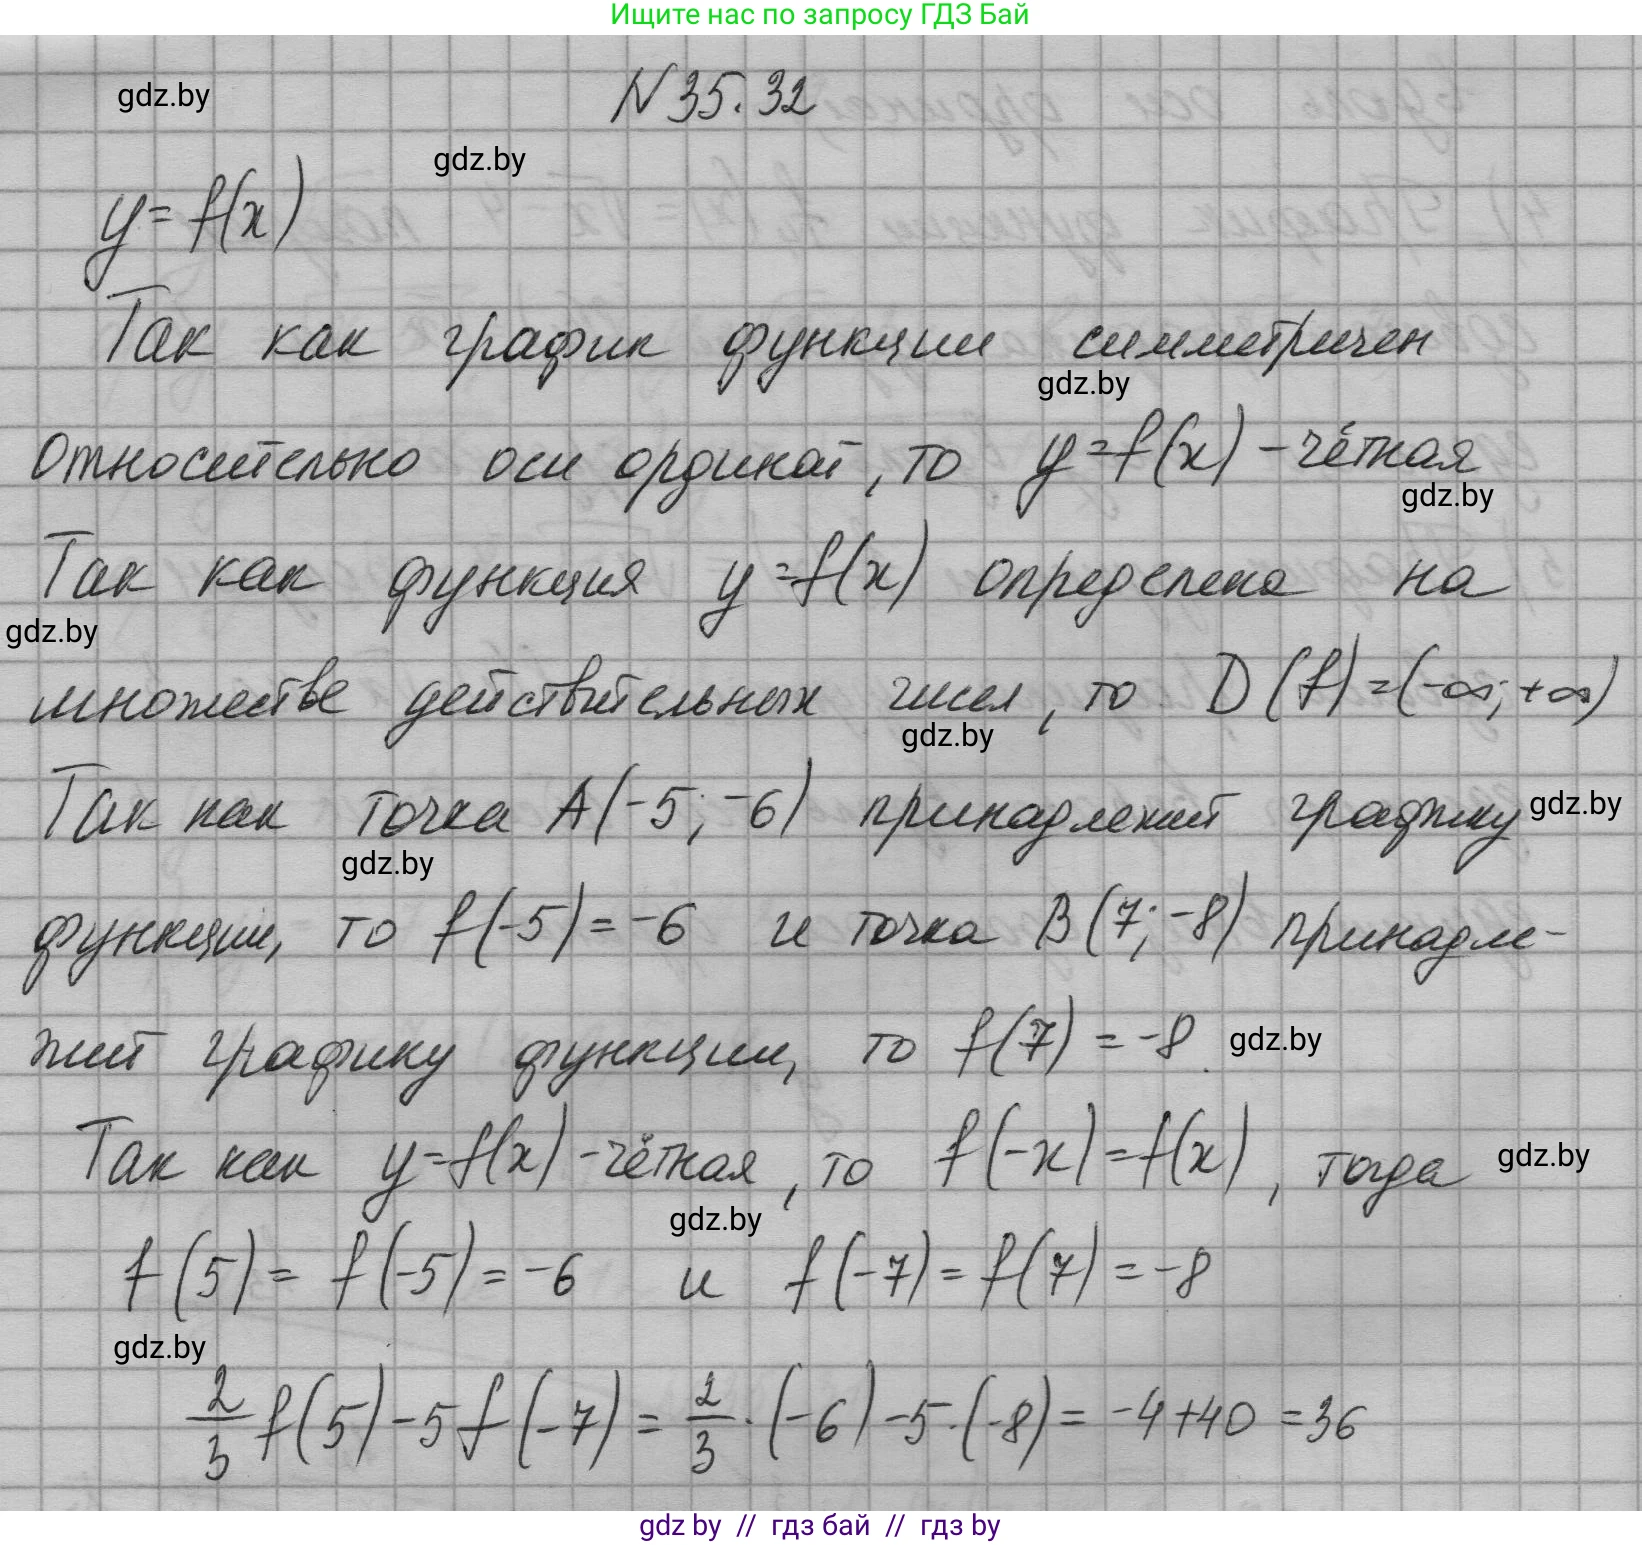 Ищите нас по запросу ГДЗ Бай
N 35.32
gdz.by
gdz.by
y = f(x)
Так как график функции симметричен
gdz.by
относительно оси ординат, то y = f(x) - чётная
gdz.by
Так как функция y = f(x) определена на
gdz.by
множестве действительных чисел, то D(f) = (-∞; +∞)
gdz.by
Так как точка A(-5; -6) принадлежит графику
gdz.by
gdz.by
функции, то f(-5) = -6 и точка B(7; -8) принадле-
жит графику функции, то f(7) = -8.
gdz.by
Так как y = f(x) - чётная, то f(-x) = f(x), тогда
gdz.by
gdz.by
f(5) = f(-5) = -6 и f(-7) = f(7) = -8
gdz.by
2/3 f(5) - 5f(-7) = 2/3 · (-6) - 5 · (-8) = -4 + 40 = 36
gdz by // гдз бай // гдз by